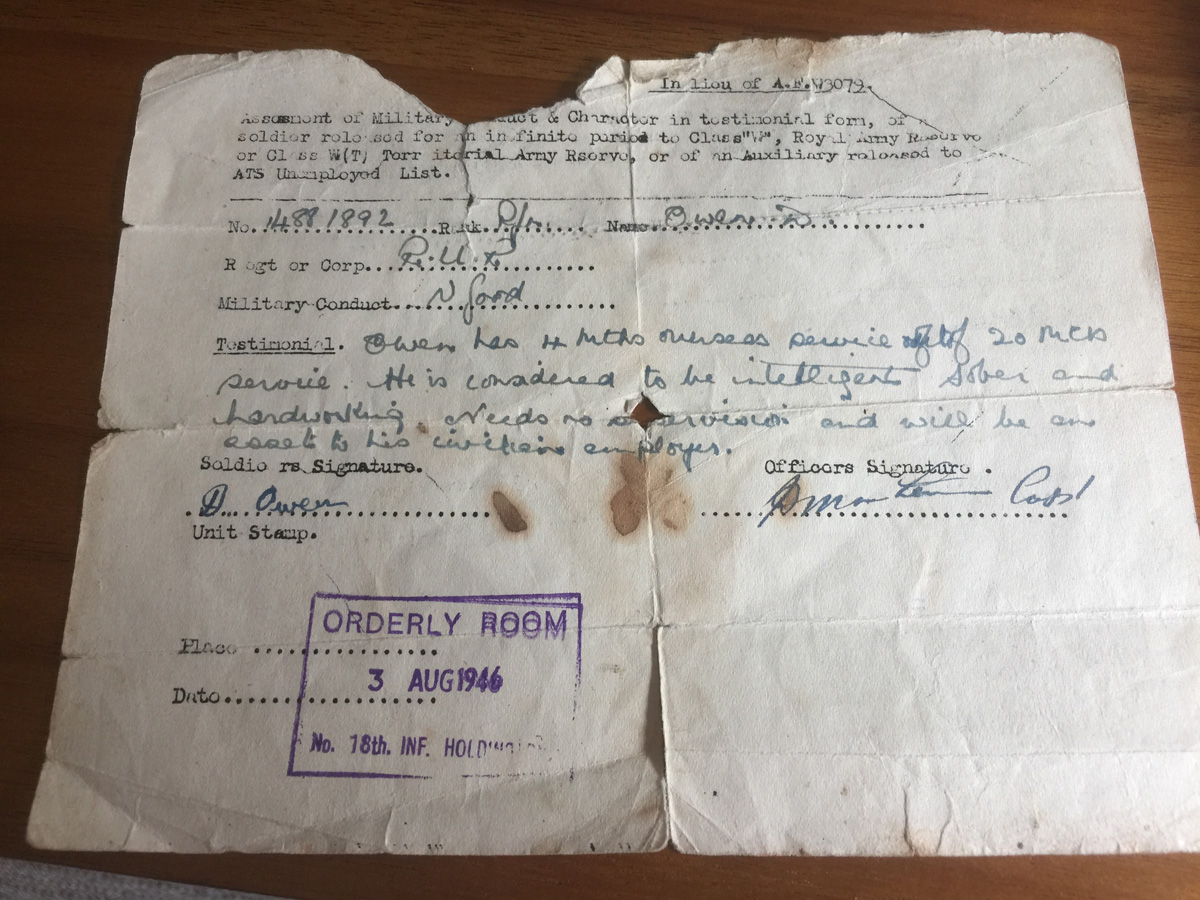 In lieu of A.F.W3079.
Assesment of Military Conduct & Character in testimonial form, of
soldier released for an infinite period to Class"W", Royal Army Reserve
or Class W(T) Territorial Army Rserve, or of an Auxiliary released to
ATS Unemployed List.
No. 14881892 Rank Rfn. Name Owen D
Regt or Corp. R.U.R
Military Conduct. V Good
Testimonial. Owen has 4 mths overseas service out of 20 mths
service. He is considered to be intelligent sober and
hardworking. Needs no supervision and will be an
asset to his civilian employer.
Soldiers Signature. Officers Signature.
D. Owen Capt
Unit Stamp.
ORDERLY ROOM
Place
3 AUG 1946
Date
No. 18th. INF. HOLDING